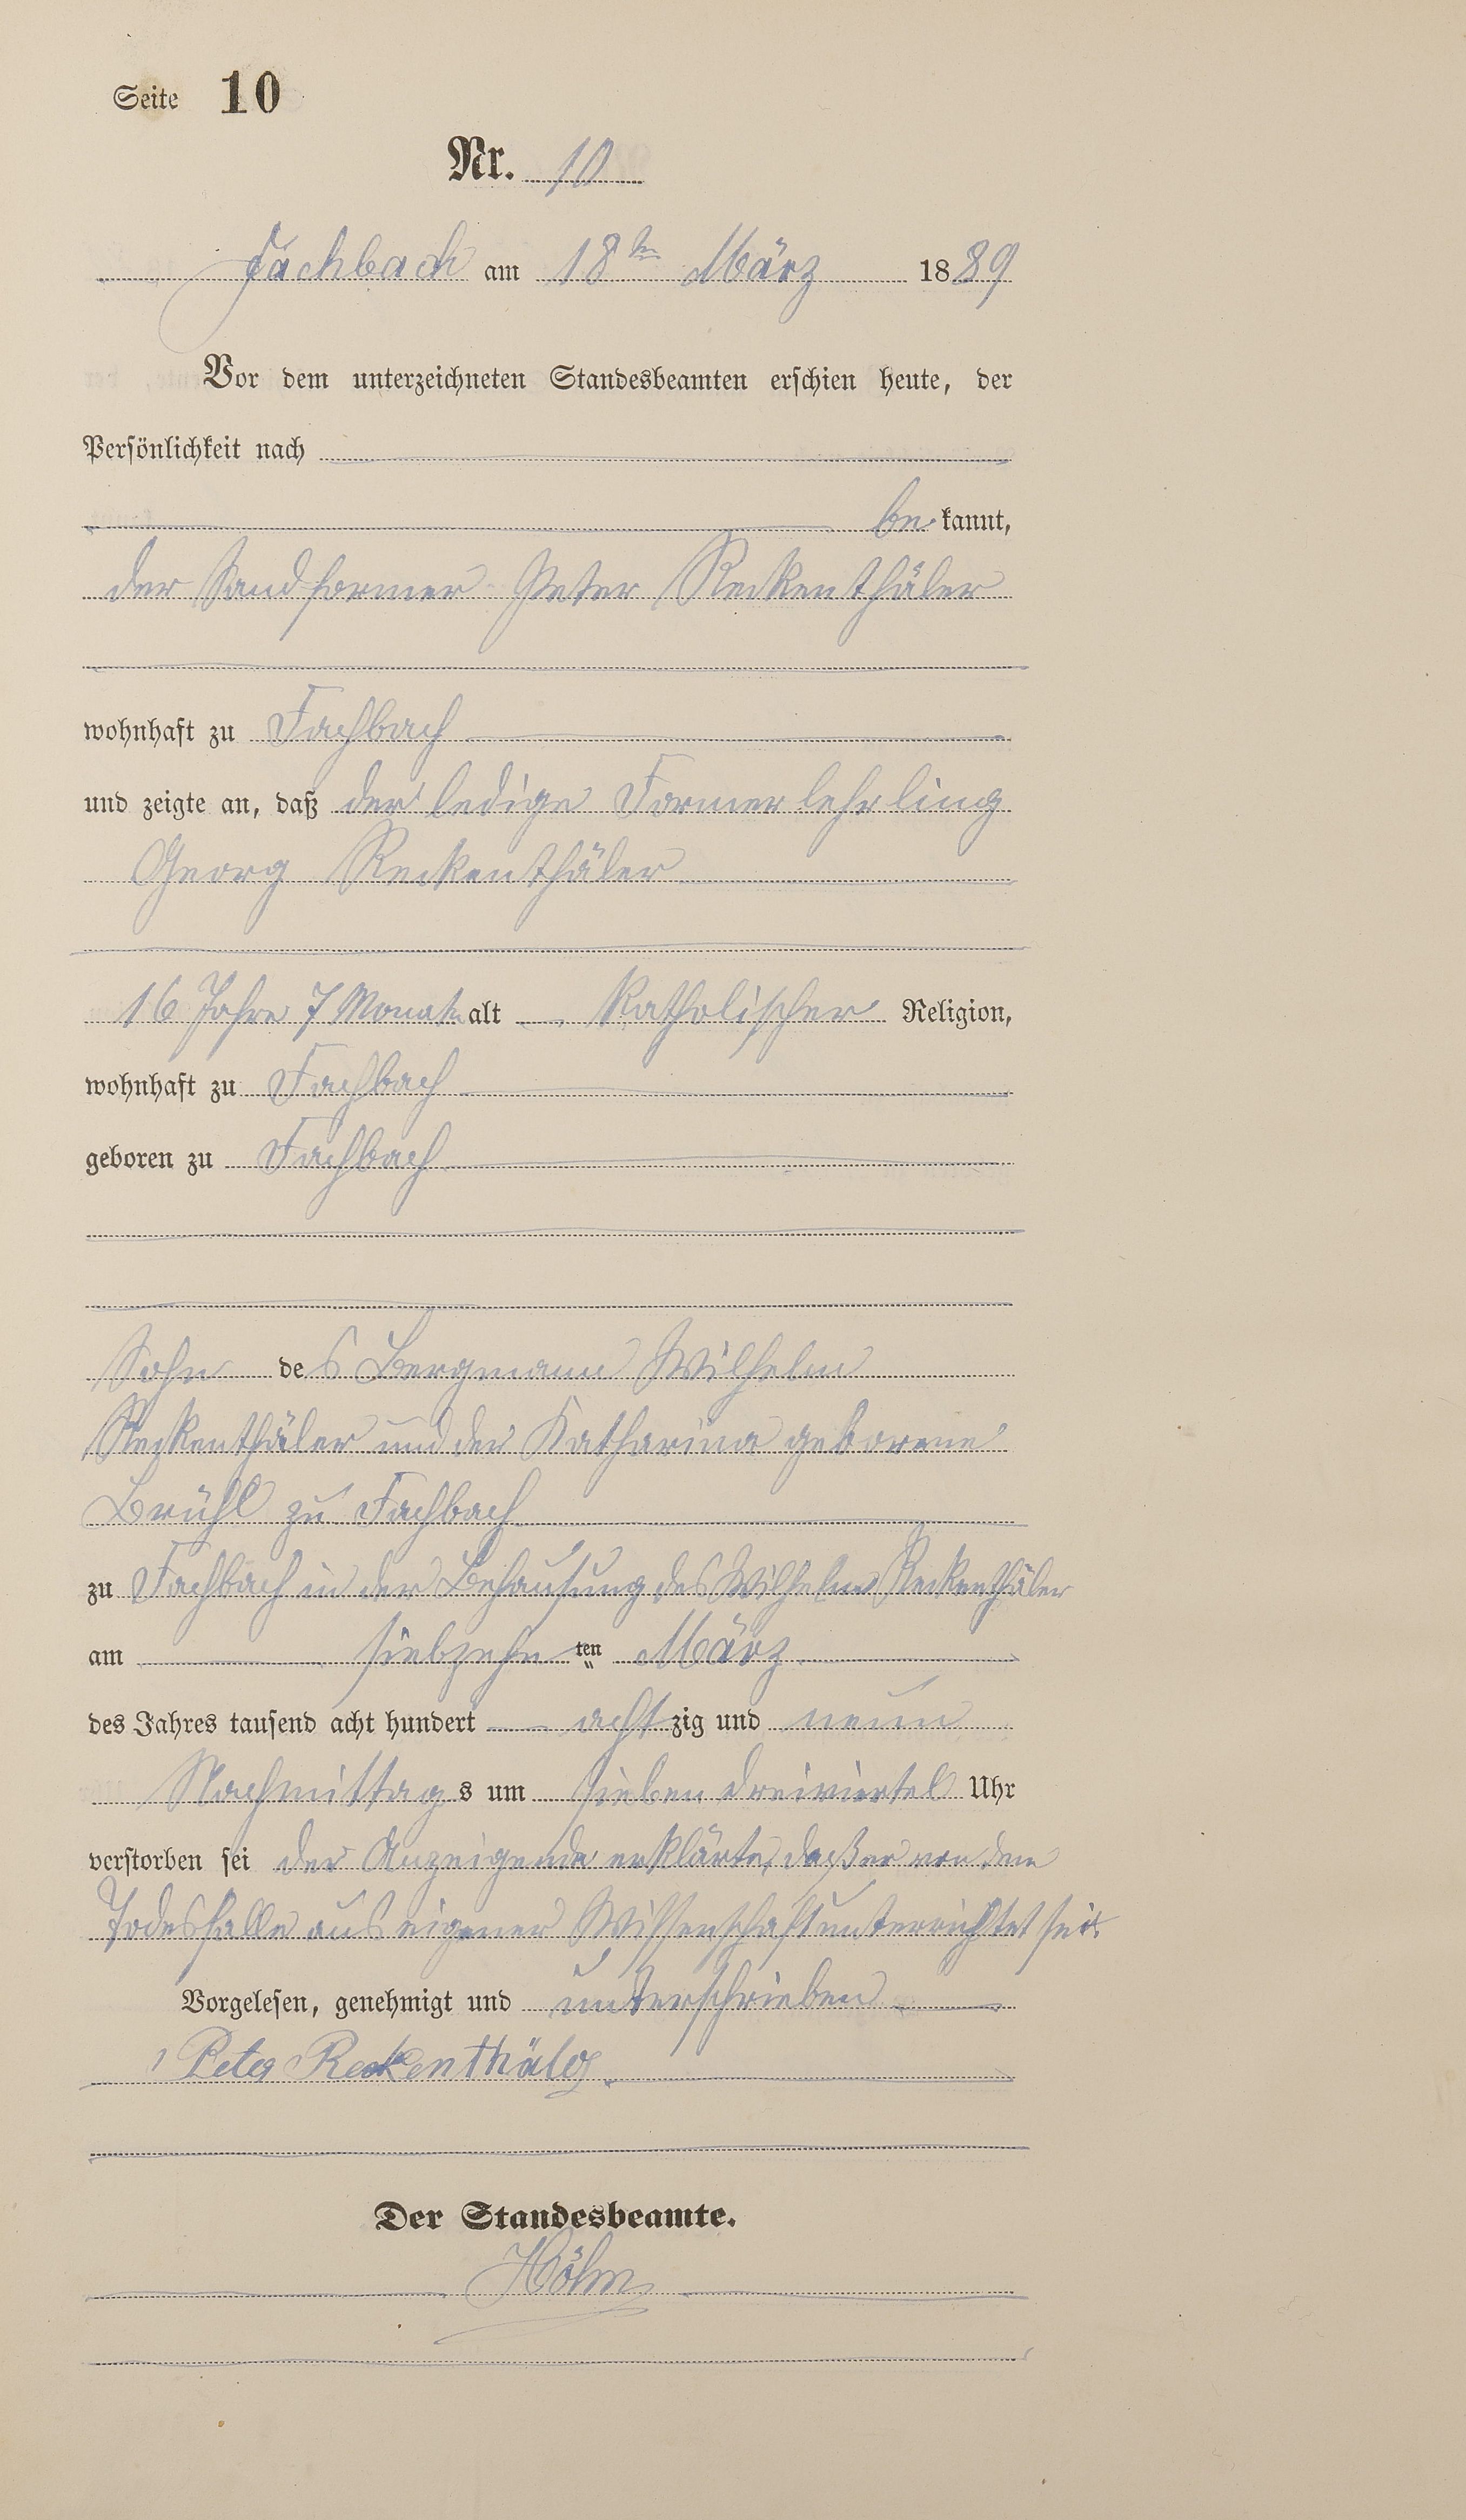 Seite 10
Nr. 10
Fachbach am 18ten März 1889
Vor dem unterzeichneten Standesbeamten erschien heute, der
Persönlichkeit nach
be kannt,
der Sandformer Peter Reckenthäler
wohnhaft zu Fachbach
und zeigte an, daß der ledige Formerlehrling
Georg Reckenthäler
16 Jahre 7 Monate alt katholischer Religion,
wohnhaft zu Fachbach
geboren zu Fachbach
Sohn des Bergmann Wilhelm
Reckenthäler und der Katharina geborene
Brühl zu Fachbach
zu Fachbach in der Behausung des Wilhelm Reckenthäler
am siebzehn ten März
des Jahres tausend acht hundert achtzig und neun
Nachmittags um sieben dreiviertel Uhr
verstorben sei der Anzeigende erklärte, daß er von dem
Todesfalle aus eigener Wissenschaft unterrichtet sei.
Vorgelesen, genehmigt und unterschrieben
Peter Reckenthäler
Der Standesbeamte.